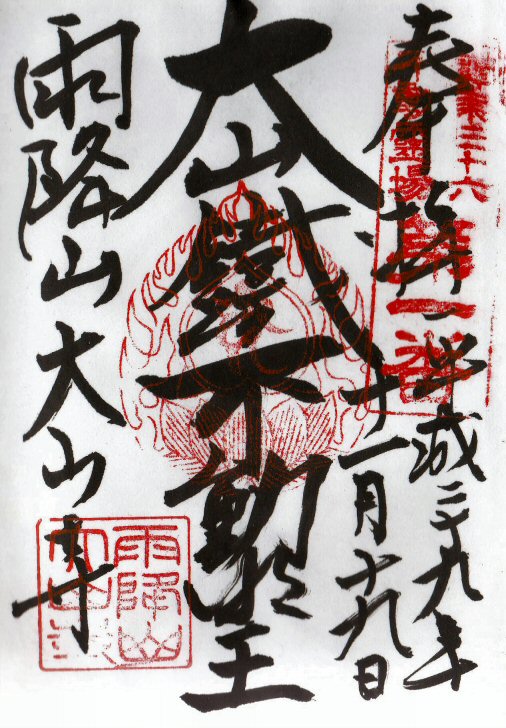 奉拝
関東三十六
不動霊場
第一番
平成二十九年
十一月十九日
大山鐵不動明王
雨降山大山寺
雨降山
大山寺